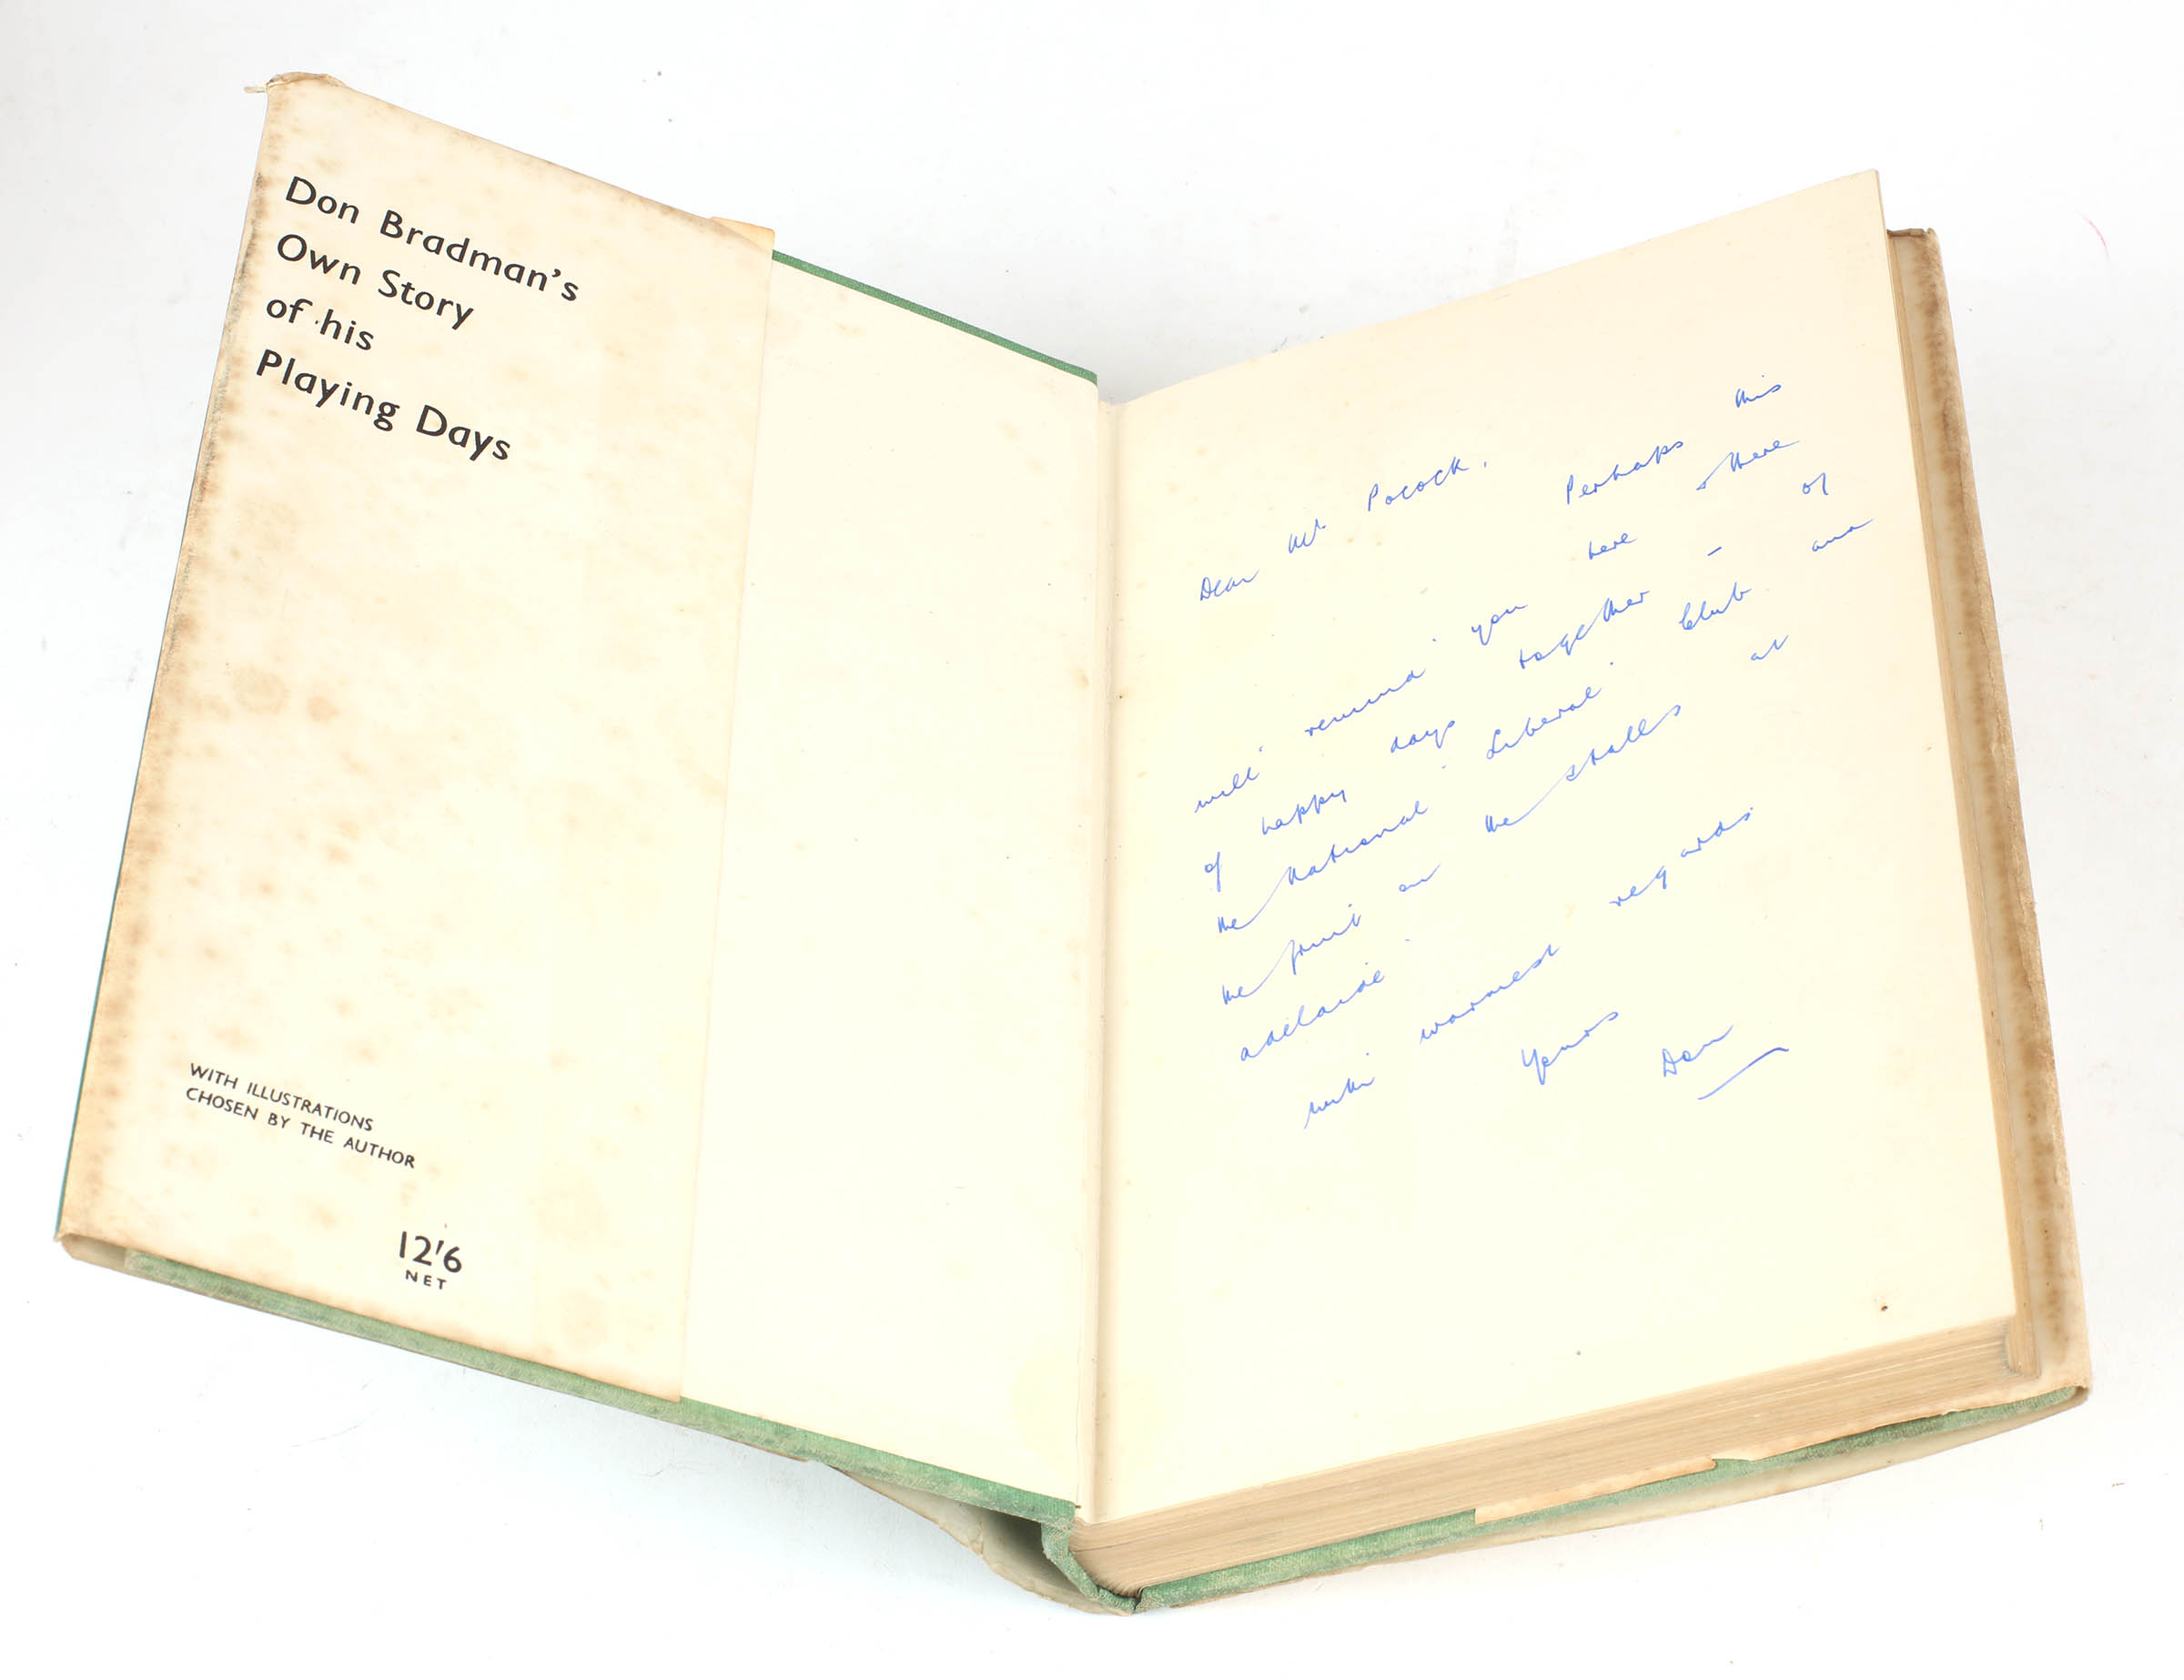 Don Bradman's
Own Story
of his
Playing Days
WITH ILLUSTRATIONS
CHOSEN BY THE AUTHOR
12'6
NET
Dear Mr Pocock,
Perhaps this
will remind you here & there
of happy days together – of
the National Liberal Club and
the fruit on the stalls at
Adelaide.
With warmest regards
Yours
Don